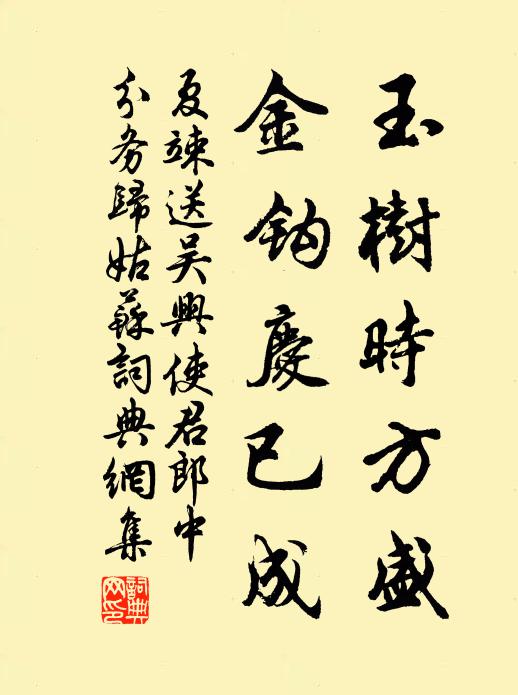 玉樹時方盛
金鈎慶已成
夏竦送吴興使君郎中
分务歸姑蘇詞典網集
詞典
网印